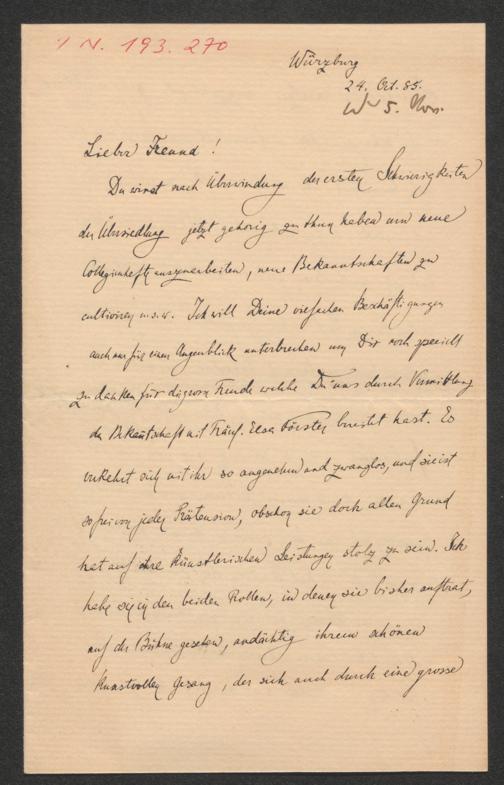 N. 193. 270
Würzburg
24. Oct. 85.
5. Nov.
Lieber Freund!
Du wirst nach Überwindung der ersten Schwierigkeiten
der Übersiedlung jetzt gehörig zu thun haben um neue
Collegienhefte auszuarbeiten, neue Bekanntschaften zu
cultiviren u.s.w. Ich will Deine vielfachen Beschäftigungen
auch nur für einen Augenblick unterbrechen um Dir noch speciell
zu danken für die große Freude welche Du uns durch Vermittlung
der Bekantschaft mit Fräul. Elsa Förster bereitet hast. Es
verkehrt sich mit ihr so angenehm und zwanglos, und sie ist
so frei von jeder Prätension, obschon sie doch allen Grund
hat auf ihre künstlerischen Leistungen stolz zu sein. Ich
habe sie in den beiden Rollen, in denen sie bisher auftrat,
auf der Bühne gesehen, andächtig ihrem schönen
kunstvollen Gesang, der sich auch durch eine grosse